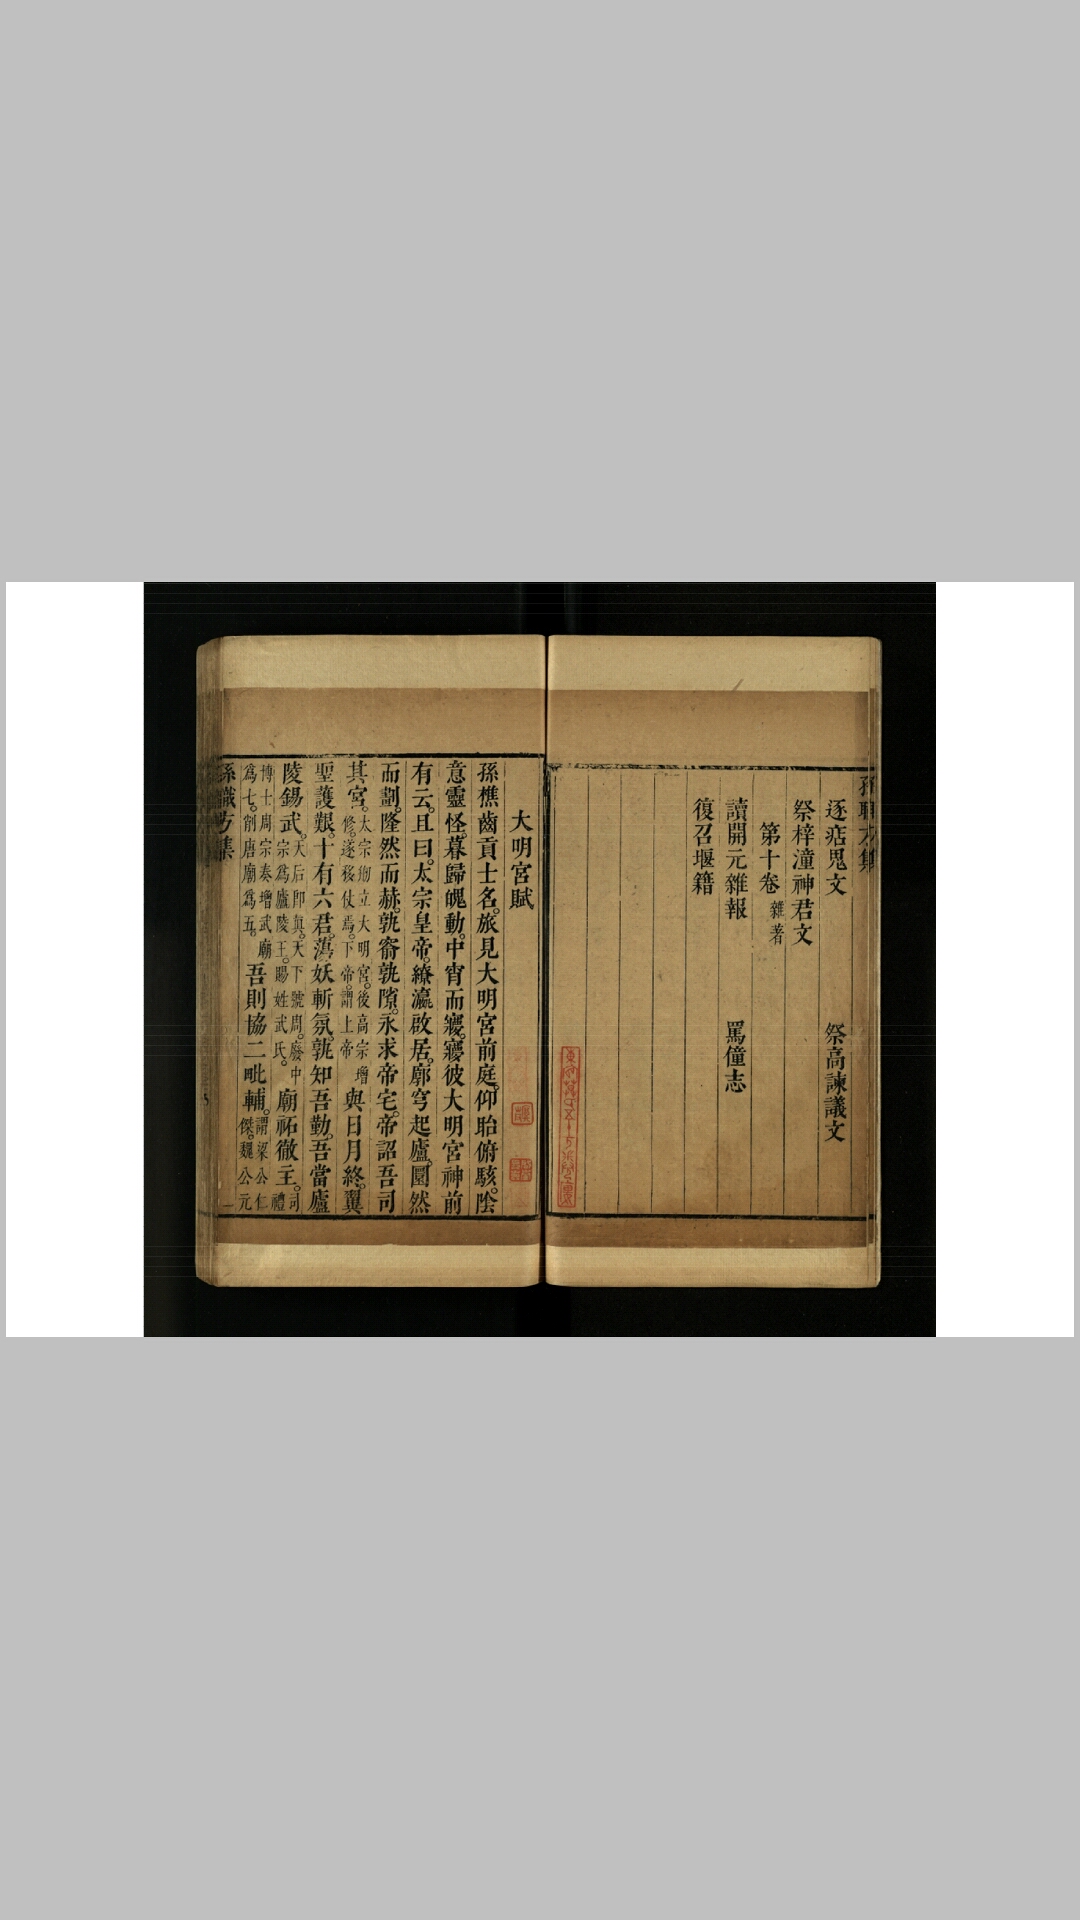 逐痁鬼文　祭高諫議文
祭梓潼神君文
第十卷 雜著
讀開元雜報　罵僮志
復召堰籍
大明宮賦
孫樵齒貢士名。旅見大明宮前庭。仰眙俯駭。陰
意靈怪。暮歸魄動。中宵而寢。寢彼大明宮神前
有云。且曰。太宗皇帝。繚瀛啟居。廓穹起廬。圜然
而劃。隆然而赫。孰窬孰隙。永求帝宅。帝詔吾司
其宮。太宗剏立大明宮。後高宗增修。遂移仗焉。下帝。謂上帝 與日月終。翼
聖護艱。十有六君。蕩妖斬氛。孰知吾勤。吾當廬
陵錫武。天后即眞。天下號周。廢中宗為廬陵王。賜姓武氏。 廟祏徹主。司禮
博士周宗奏增武廟爲七。削唐廟爲五。 吾則協二毗輔。謂梁公仁傑。魏公元
一